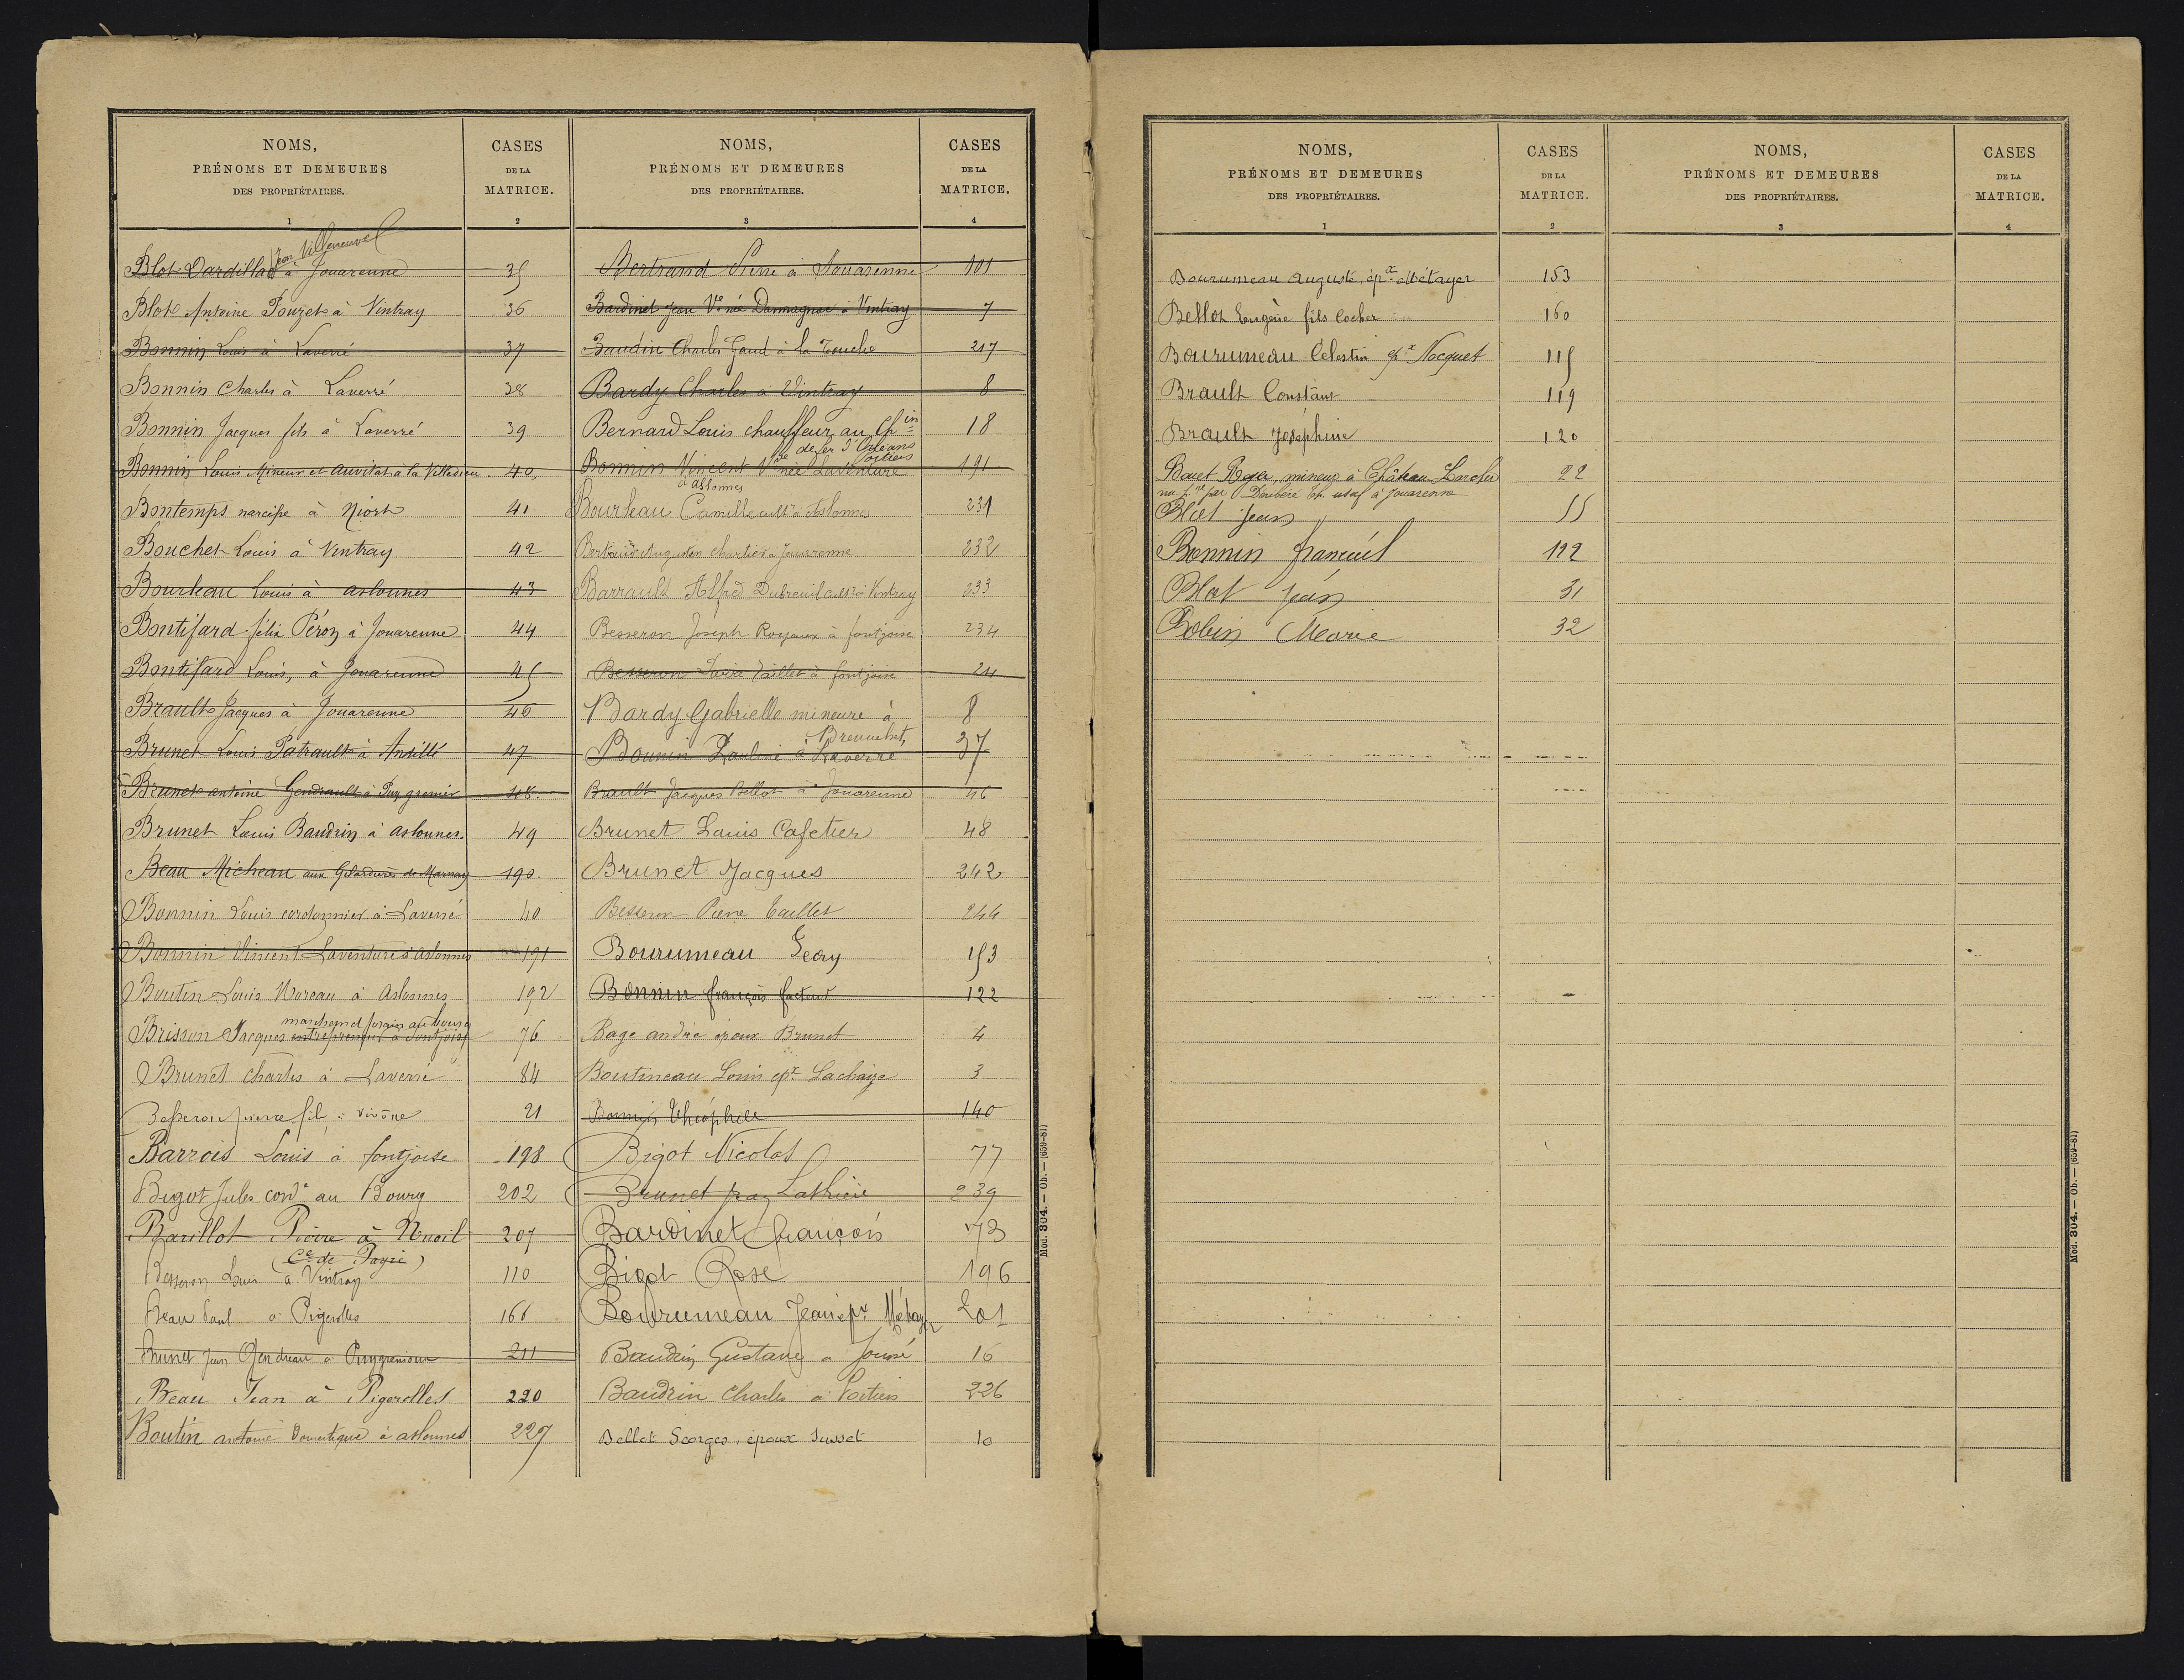 NOMS,
PRÉNOMS ET DEMEURES
DES PROPRIÉTAIRES.
1
CASES
DE LA
MATRICE.
2
Jean Villeneuve
Blot Dardillac à Jouarenne 35
Blot Antoine Pouzet à Vintray 36
Bonnin Louis à Laverré 37
Bonnin Charles à Laverré 38
Bonnin Jacques fils à Laverré 39
Bonnin Louis Mineur et Auvitat à la Villedieu 40
Bontemps narcisse à Niort 41
Bouchet Louis à Vintray 42
Bourleau Louis à aslonnes 43
Boutifard félix Péron à Jouarenne 44
Boutifard Louis, à Jouarenne 45
Brault Jacques à Jouarenne 46
Brunet Louis Patrault à Andillé 47
Brunet antoine Gendrault à Puygremier 48
Brunet Louis Baudin à aslonnes. 49
Beau Micheau aux de Marnay 190
Bonnin Louis cordonnier à Laverré 40
Bonnin Vincent Laventure à aslonnes 191
Boutin Louis Moreau à Aslonnes 192
marchand forain au bourg
Brisson Jacques entrepreneur à fontjoise 76
Brunet Charles à Laverré 84
Besseron pierre fils à vivône 21
Barrois Louis à fontjoise 198
Bigot Jules cordr au Bourg 202
Barillot Pierre à Nieuil 207
(Ce de Payré)
Besseron Louis à Vintray 110
Beau Paul à Pigerolles 166
Brunet Jean Gendreau à Puygremier 211
Beau Jean à Pigerolles 220
Boutin antoine Domestique à aslonnes 227
NOMS,
PRÉNOMS ET DEMEURES
DES PROPRIÉTAIRES.
3
CASES
DE LA
MATRICE.
4
Bertrand Pierre à Jouarenne 101
Bardinet Jean Ve née Darnagnac à Vintray 7
Baudin Charles Gaud à la Touche 217
Bardy Charles à Vintray 8
Bernard Louis chauffeur au Chin 18
de fer d'Orléans
Poitiers
Bonnin Vincent Vve née Laventure 191
à Aslonnes
Bourleau Camille cultr à Aslonnes 231
Bertaud Augustin Chartier à Jouarenne 232
Barrault Alfred Dubreuil cultr à Vintray 233
Besseron Joseph Royaux à fontjoise 234
Besseron Taillet à fontjoise 24
Bardy Gabrielle mineure à 8
Bonnin Pauline à Laverré 37
Brault Jacques Bellot à Jouarenne 46
Brunet Louis Cafetier 48
Brunet Jacques 242
Besseron Pierre Taillet 244
Bourumeau Lecry 153
Bonnin françois facteur 122
Bage andré époux Brunet 4
Boutineau Louis epx Lachaize 3
Bonnin Théophile 140
Bigot Nicolas 77
Brunet 239
Bardinet françois 73
Bigot Rose 196
Bourumeau Jean épx Métayer 201
Baudin Gustave à Jousé 16
Baudin Charles à Poitiers 226
Bellot Georges, époux Susset 10
Mod. 304. — Ob. — (659-81)
NOMS,
PRÉNOMS ET DEMEURES
DES PROPRIÉTAIRES.
1
CASES
DE LA
MATRICE.
2
Bourumeau Auguste, épx Métayer 153
Bellot Eugène fils Cocher 160
Bourumeau Célestin épx Nocquet 115
Brault Constant 119
Brault Joséphine 120
Bouet Roger, mineur à Château-Larcher 22
usuf à Jouarenne
Blot Jean 55
Bonnin françois 122
Blot Jean 31
Robin Marie 32
NOMS,
PRÉNOMS ET DEMEURES
DES PROPRIÉTAIRES.
3
CASES
DE LA
MATRICE.
4
Mod. 304. — Ob. — (659-81)